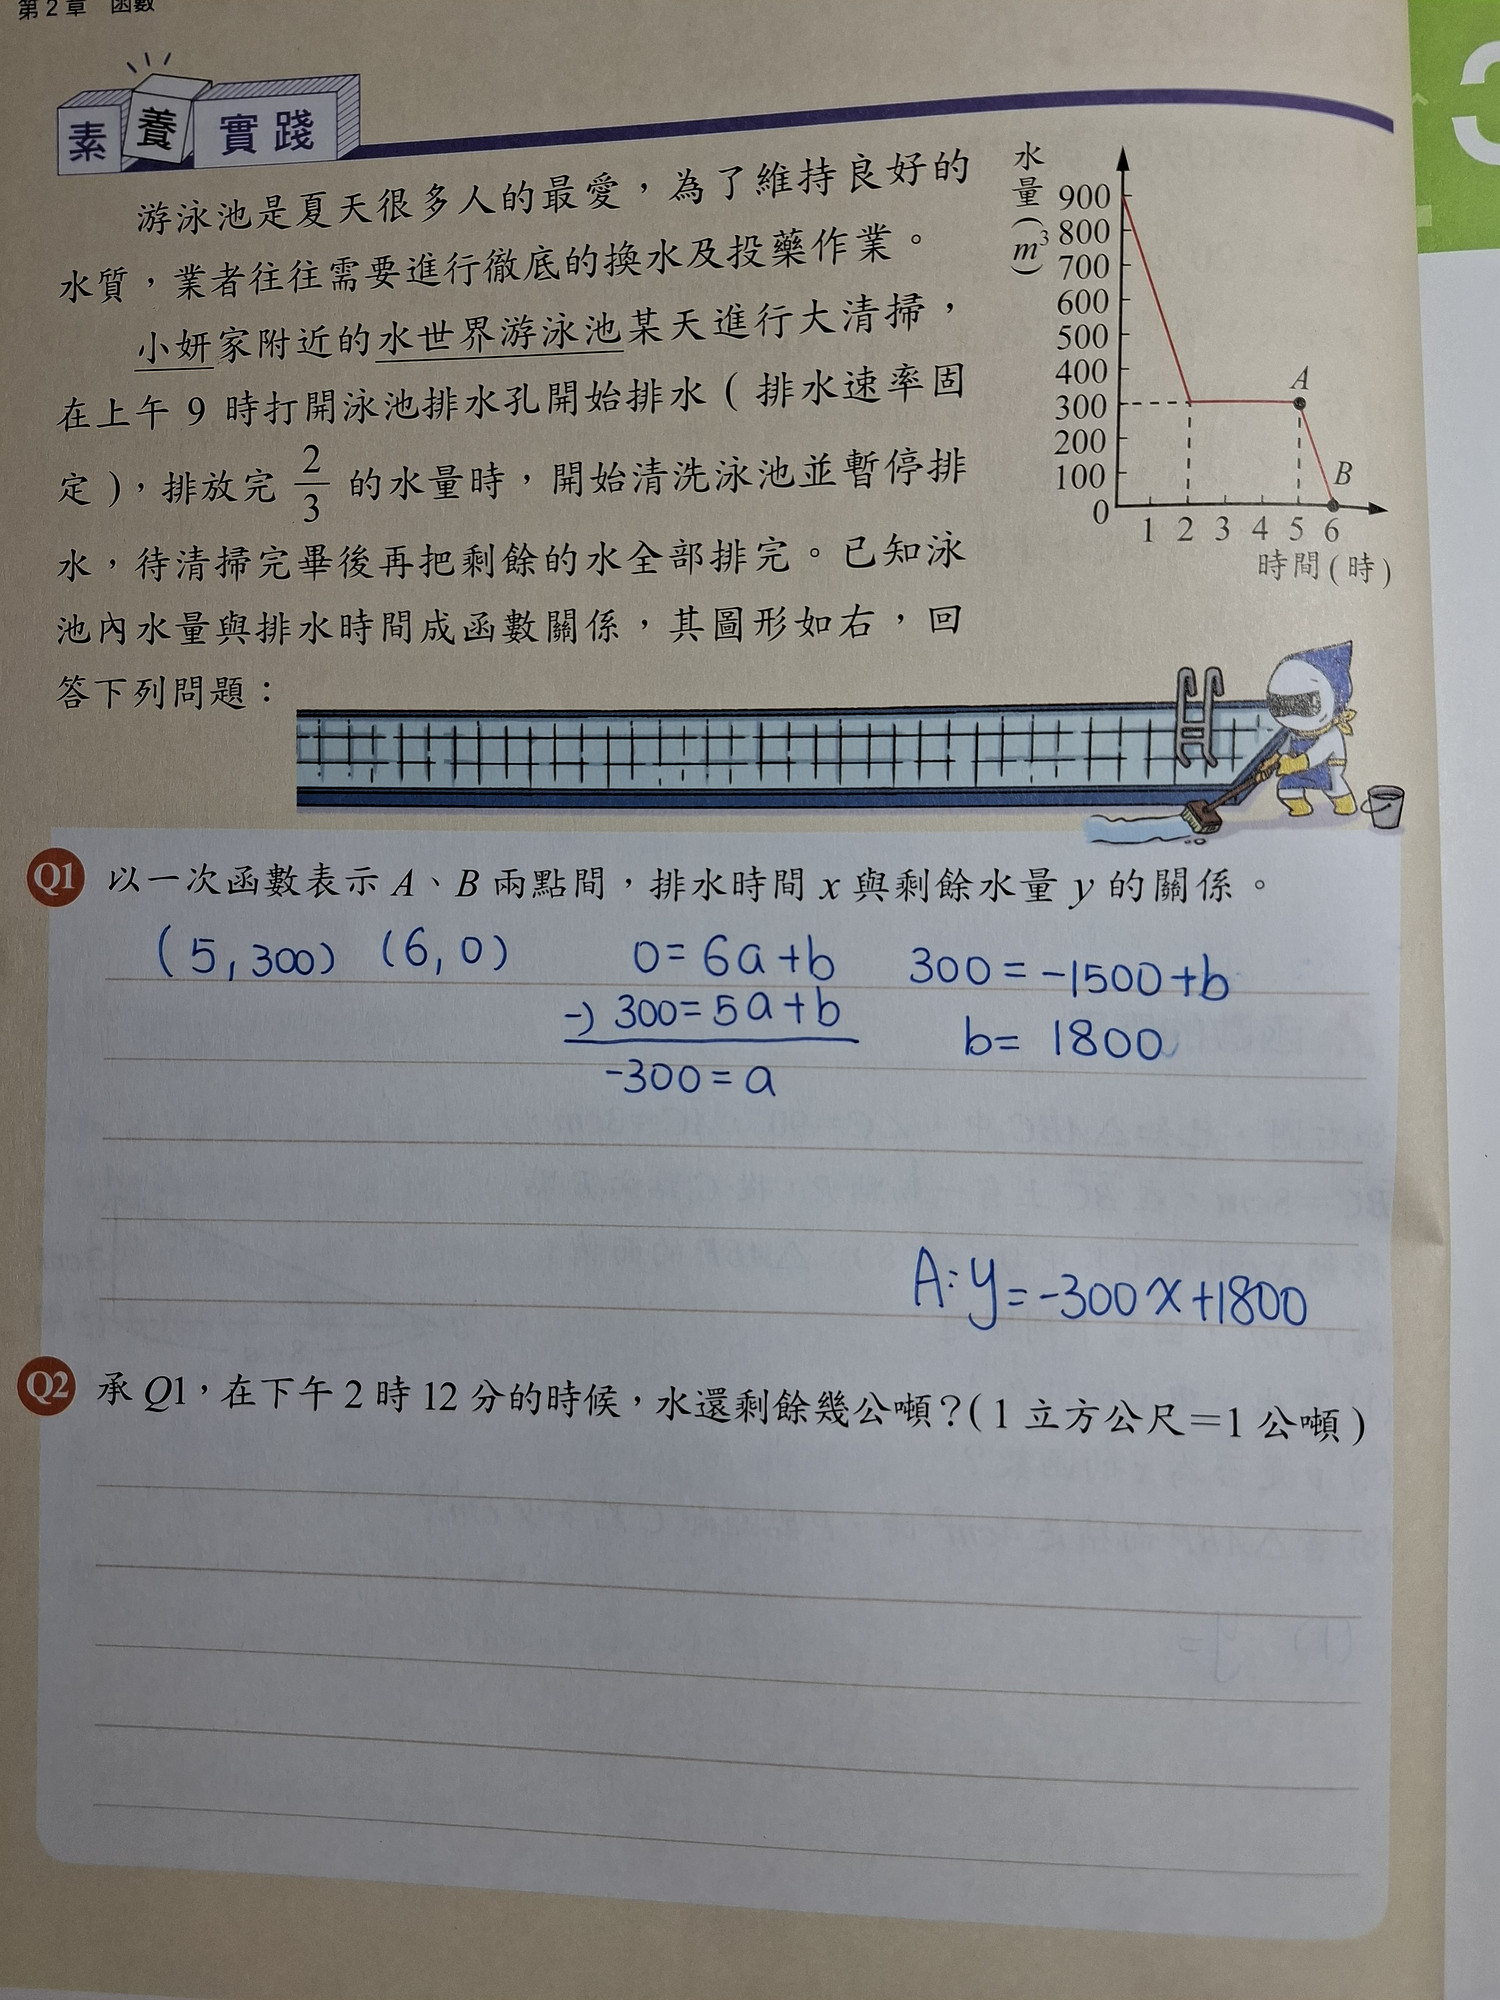 第2章 函數
素養實踐
游泳池是夏天很多人的最愛，為了維持良好的
水質，業者往往需要進行徹底的換水及投藥作業。
小妍家附近的水世界游泳池某天進行大清掃，
在上午 9 時打開泳池排水孔開始排水（排水速率固
定），排放完 2/3 的水量時，開始清洗泳池並暫停排
水，待清掃完畢後再把剩餘的水全部排完。已知泳
池內水量與排水時間成函數關係，其圖形如右，回
答下列問題：
水量(m³)
900
800
700
600
500
400
300
200
100
0
A
B
1 2 3 4 5 6
時間(時)
3
Q1 以一次函數表示 A、B 兩點間，排水時間 x 與剩餘水量 y 的關係。
(5,300) (6,0)
0=6a+b
-) 300=5a+b
-300=a
300=-1500+b
b=1800
A:y=-300x+1800
Q2 承 Q1，在下午 2 時 12 分的時候，水還剩餘幾公噸？(1 立方公尺＝1 公噸)